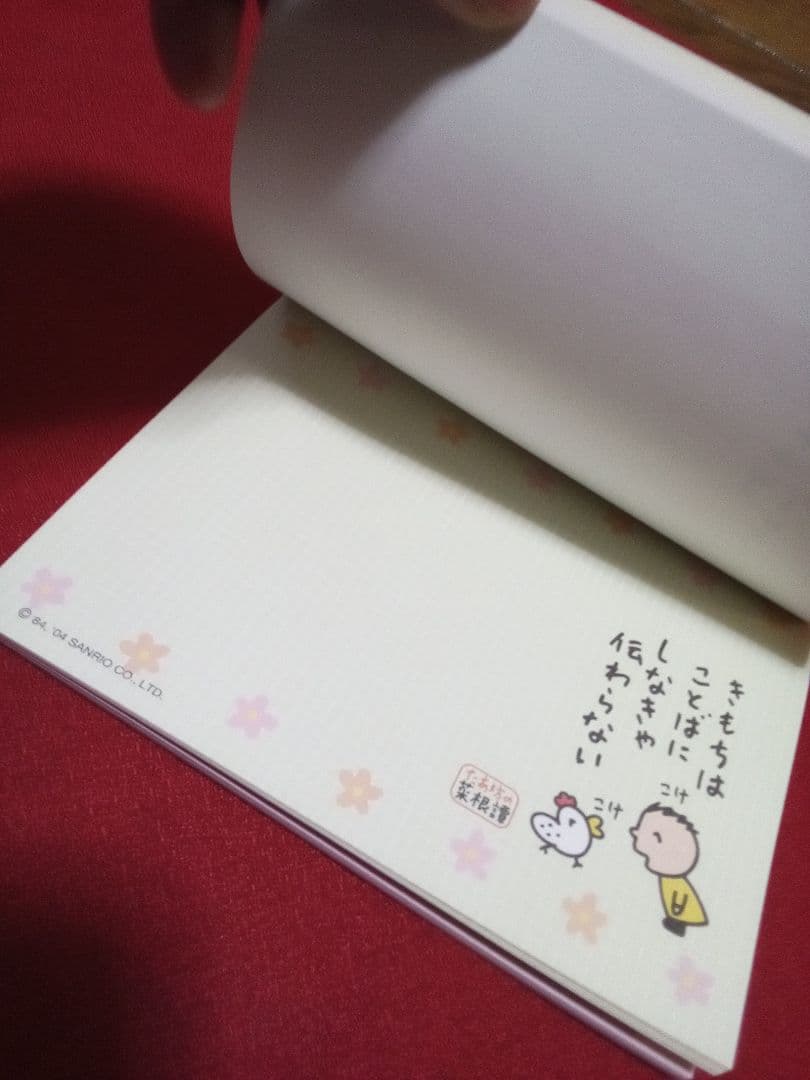 きもちは
ことばに
しなきゃ
伝わらない
こけ
こけ
たあ坊の
菜根譚
© '84, '04 SANRIO CO., LTD.